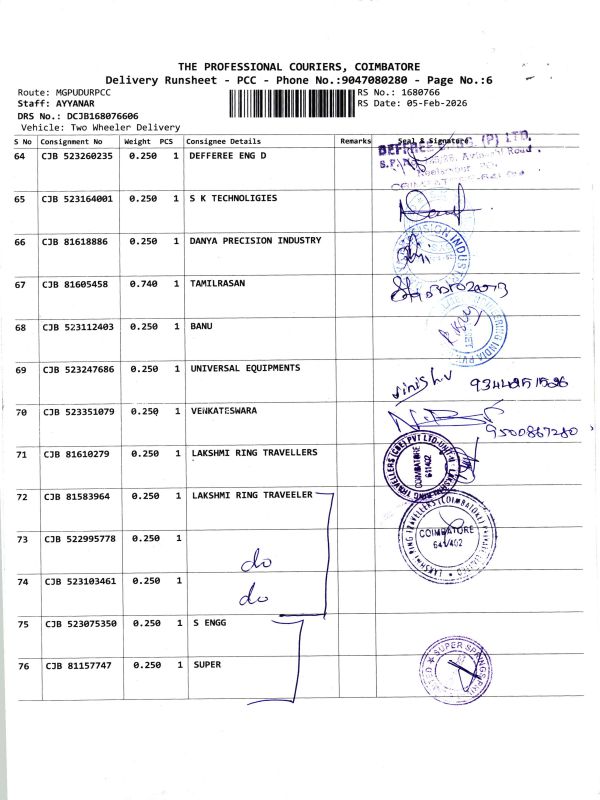 THE PROFESSIONAL COURIERS, COIMBATORE
Delivery Runsheet - PCC - Phone No.:9047080280 - Page No.:6
Route: MGPUDURPCC
RS No.: 1680766
Staff: AYYANAR
RS Date: 05-Feb-2026
DRS No.: DCJB168076606
Vehicle: Two Wheeler Delivery
S No Consignment No Weight PCS Consignee Details Remarks Seal & Signature
64 CJB 523260235 0.250 1 DEFFEREE ENG D
65 CJB 523164001 0.250 1 S K TECHNOLIGIES
66 CJB 81618886 0.250 1 DANYA PRECISION INDUSTRY
67 CJB 81605458 0.740 1 TAMILRASAN
68 CJB 523112403 0.250 1 BANU
69 CJB 523247686 0.250 1 UNIVERSAL EQUIPMENTS
70 CJB 523351079 0.250 1 VENKATESWARA
9500867280
71 CJB 81610279 0.250 1 LAKSHMI RING TRAVELLERS
COIMBATORE
641402
72 CJB 81583964 0.250 1 LAKSHMI RING TRAVEELER
LAKSHMI RING TRAVELLERS (COIMBATORE)
COIMBATORE
641402
73 CJB 522995778 0.250 1
do
74 CJB 523103461 0.250 1
do
75 CJB 523075350 0.250 1 S ENGG
76 CJB 81157747 0.250 1 SUPER
SUPER SPRINGS